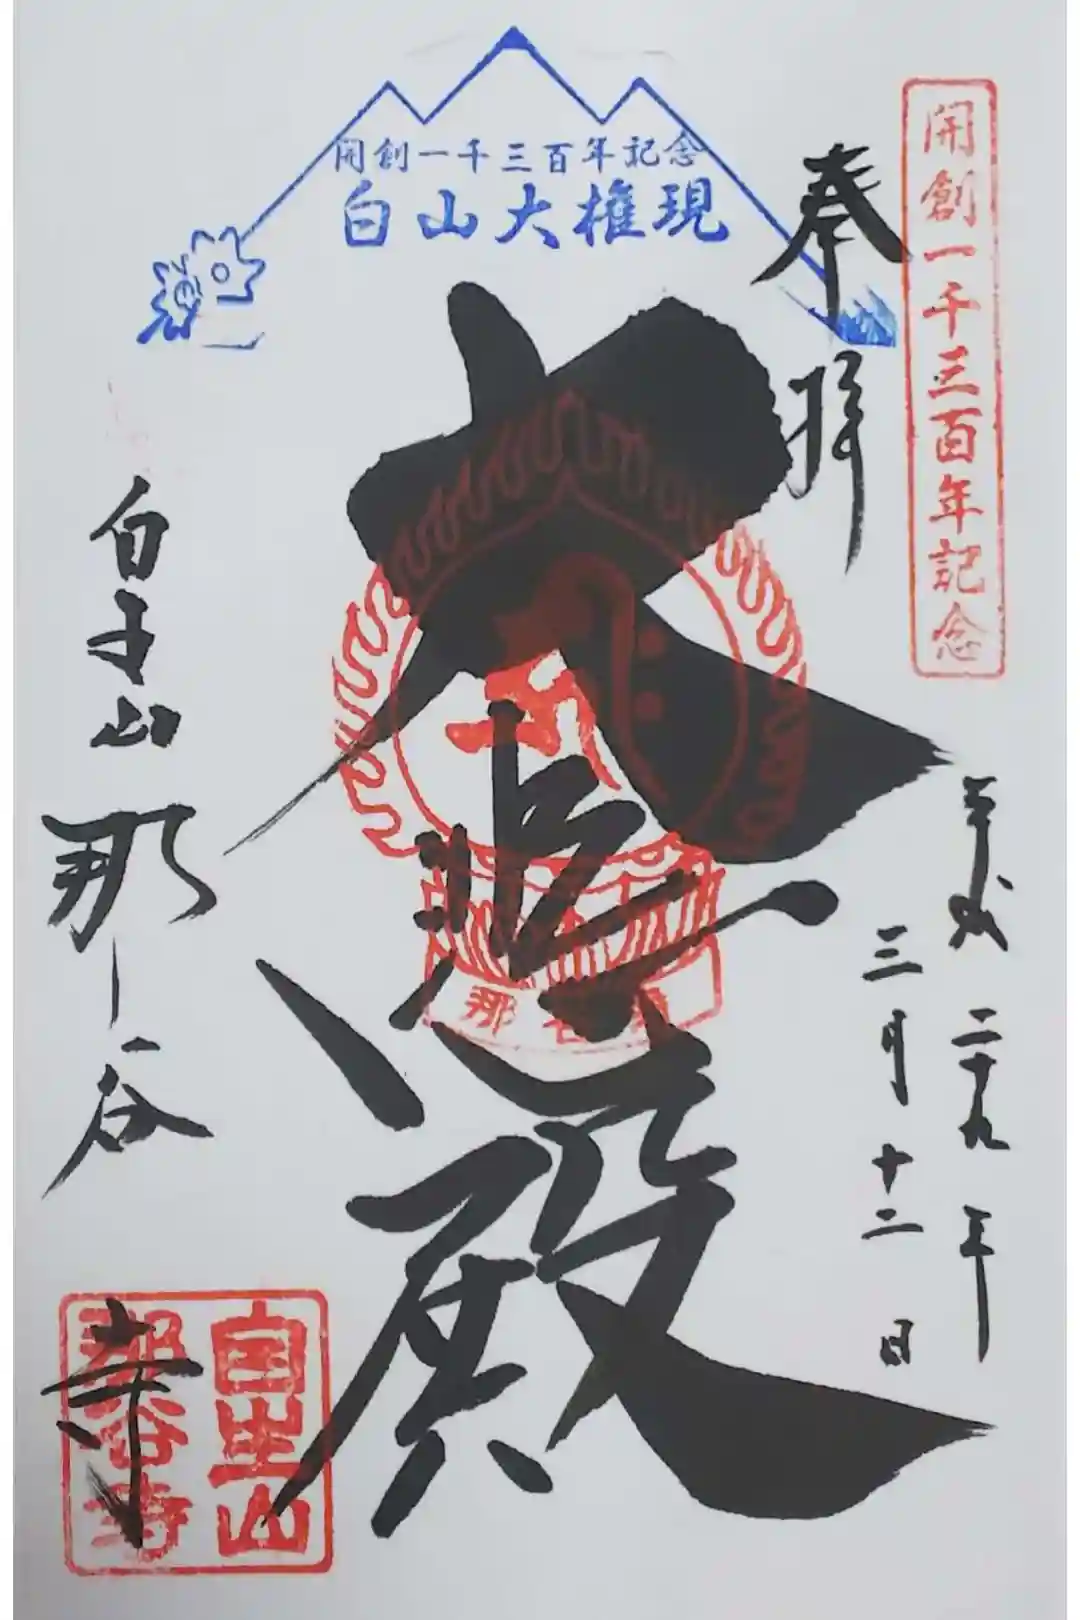 開創一千三百年記念
白山大権現
開創一千三百年記念
奉拝
平成二十九年
三月十二日
大悲殿
自生山
那谷寺
自生山
那谷寺